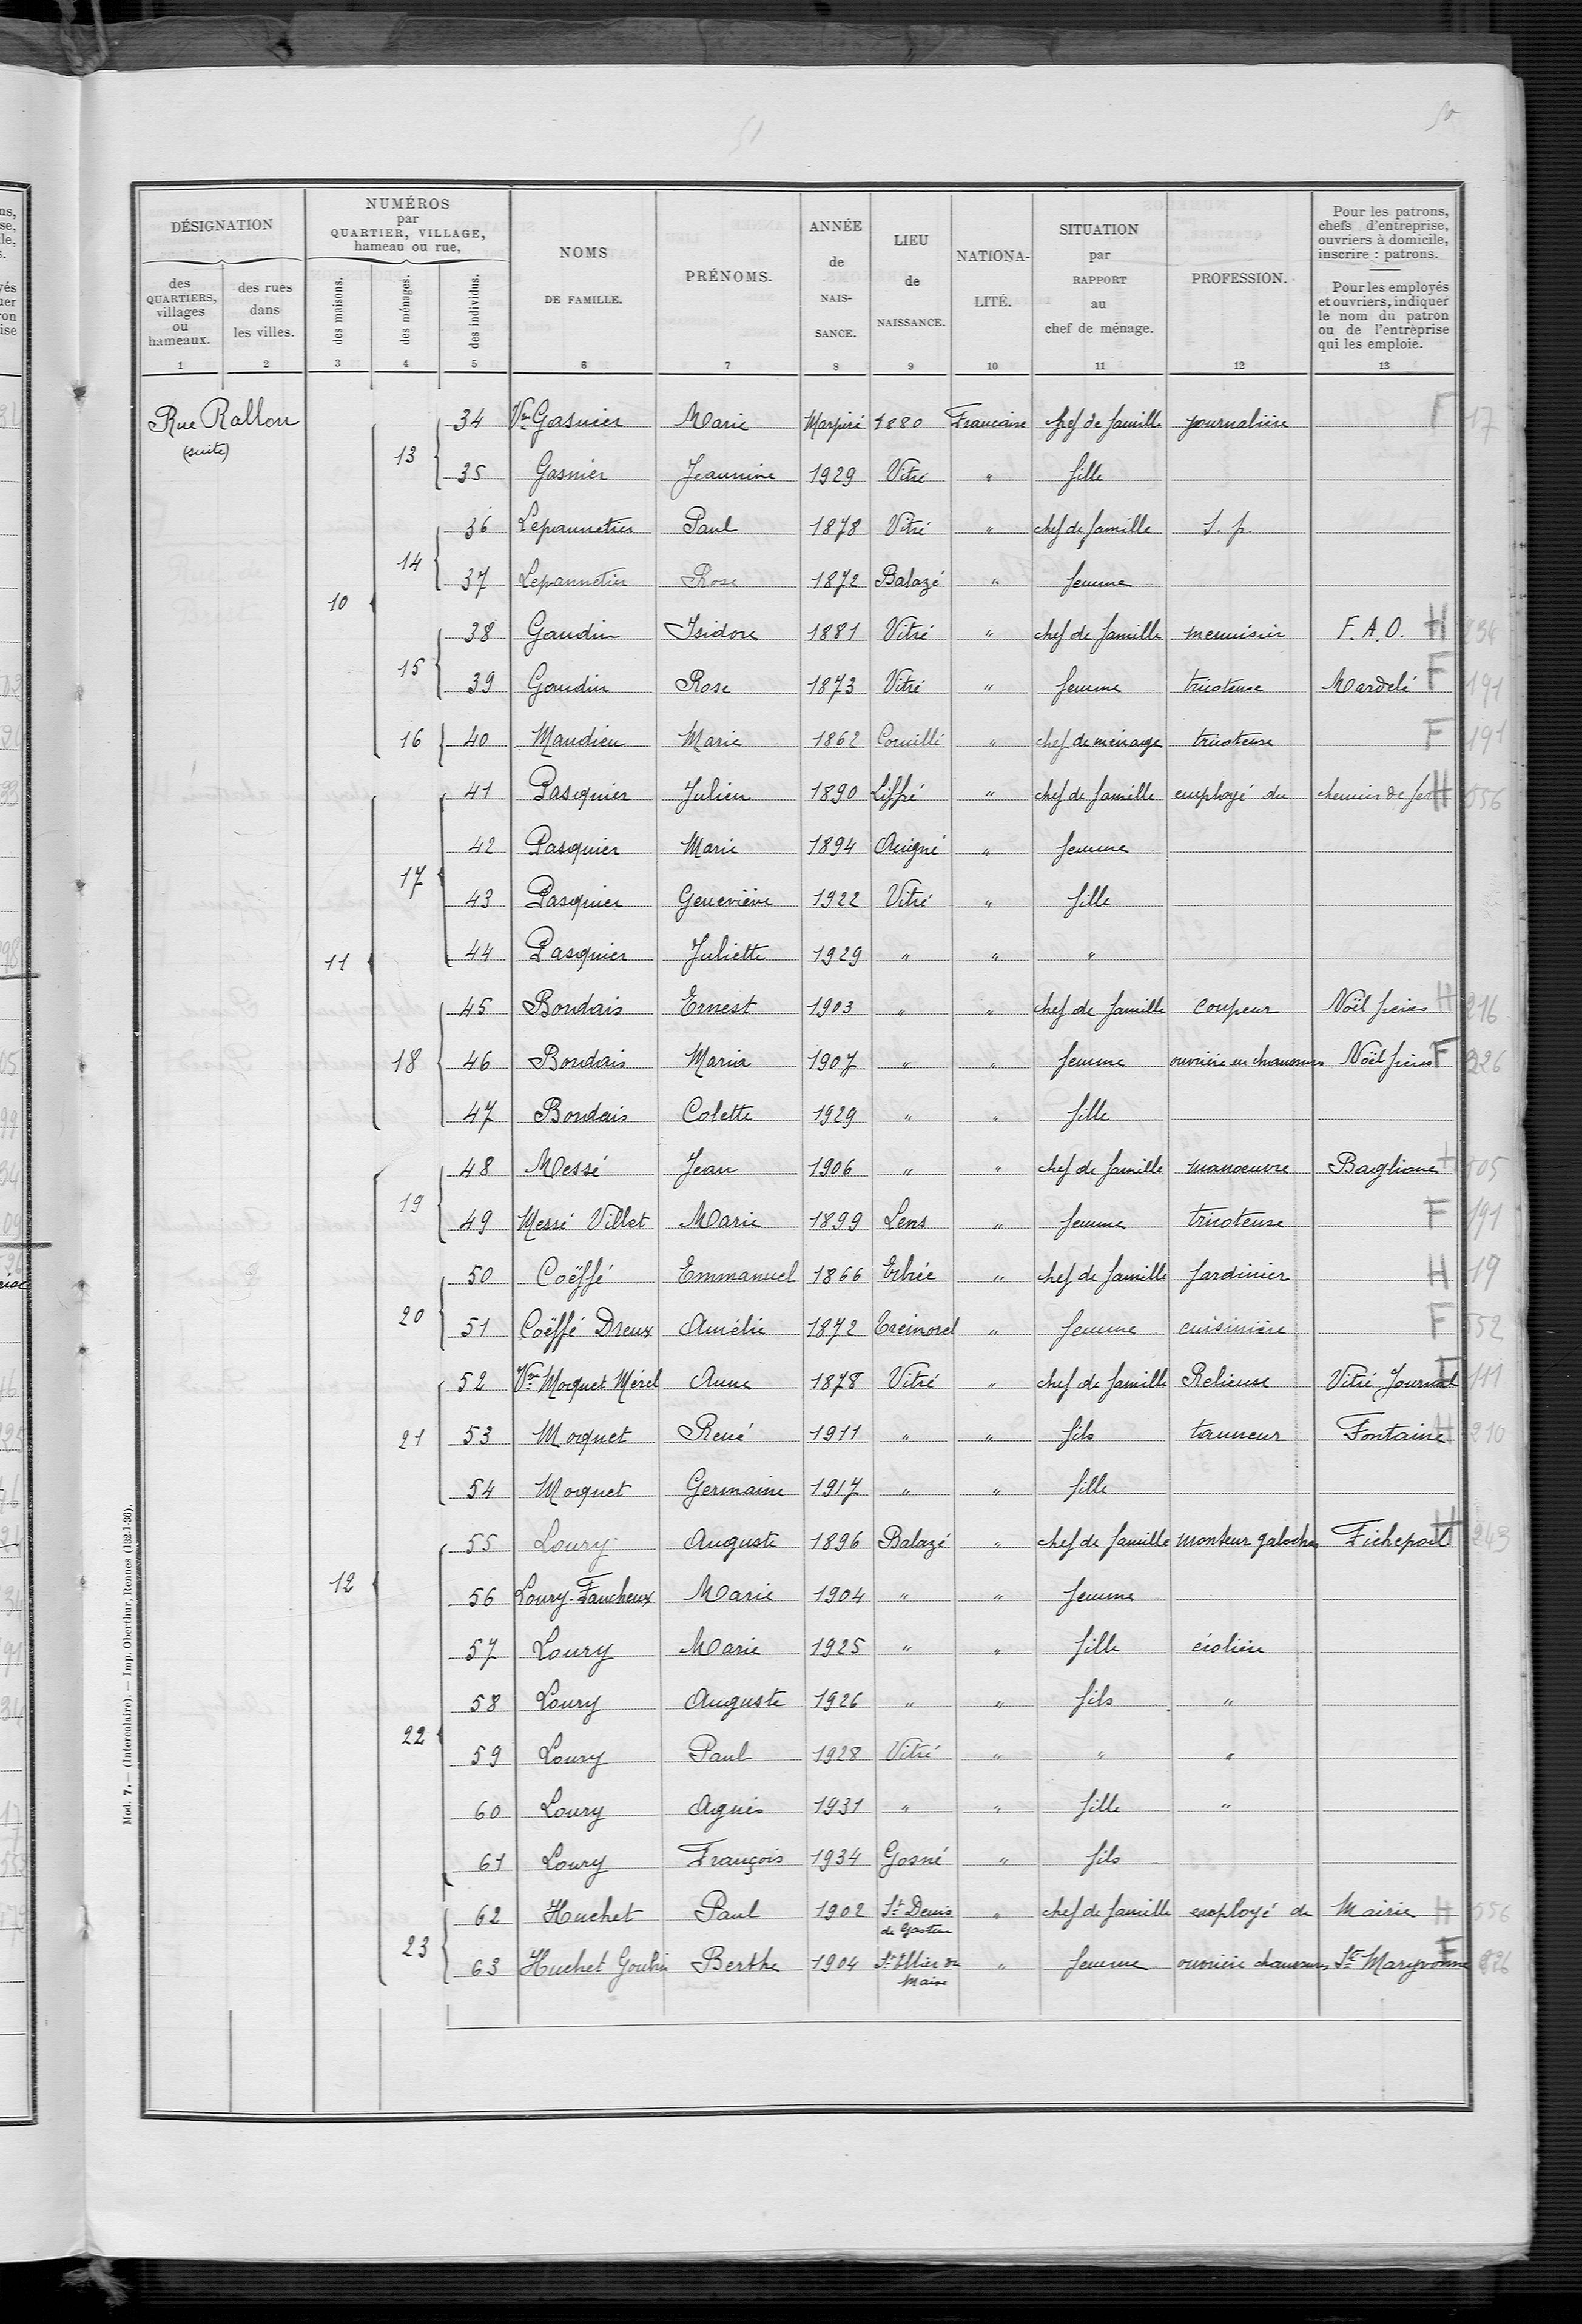 50
DÉSIGNATION
NUMÉROS
par
QUARTIER, VILLAGE,
hameau ou rue,
des
QUARTIERS,
villages
ou
hameaux.
des rues
dans
les villes.
des maisons.
des ménages.
des individus.
NOMS
DE FAMILLE.
PRÉNOMS.
ANNÉE
de
NAIS-
SANCE.
LIEU
de
NAISSANCE.
NATIONA-
LITÉ.
SITUATION
par
RAPPORT
au
chef de ménage.
PROFESSION.
Pour les patrons,
chefs d'entreprise,
ouvriers à domicile,
inscrire : patrons.
Pour les employés
et ouvriers, indiquer
le nom du patron
ou de l'entreprise
qui les emploie.
1 2 3 4 5 6 7 8 9 10 11 12 13
Rue Rallon
(suite)
34 Vve Gasnier Marie Marpiré 1880 Francaise chef de famille journalière F 17
13
35 Gasnier Jeannine 1929 Vitré " fille
36 Lepannetier Paul 1878 Vitré " chef de famille S. p.
14
37 Lepannetier Rose 1872 Balazé " femme
10
38 Gaudin Isidore 1881 Vitré " chef de famille menuisier F. A. O. H 234
15
39 Gaudin Rose 1873 Vitré " femme tricoteuse Mardelé F 191
16 40 Maudieu Marie 1862 Cornillé " chef de ménage tricoteuse F 191
41 Pasquier Julien 1890 Liffré " chef de famille employé du chemin de fer H 556
42 Pasquier Marie 1894 Acigné " femme
17
43 Pasquier Geneviève 1922 Vitré " fille
44 Pasquier Juliette 1929 " " "
11
45 Boudais Ernest 1903 " " chef de famille coupeur Noël frères H 216
18 46 Boudais Maria 1907 " " femme ouvrière en chaussures Noël frères F 226
47 Boudais Colette 1929 " " fille
48 Messé Jean 1906 " " chef de famille manoeuvre Baglione H 505
19
49 Messé Villet Marie 1899 Lens " femme tricoteuse F 191
50 Coëffé Emmanuel 1866 Erbrée " chef de famille jardinier H 19
20
51 Coëffé Dreux Aurélie 1872 Tréimorel " femme cuisinière F 552
52 Vve Moquet Mérel Anne 1878 Vitré " chef de famille Relieuse Vitré Journal F 111
21 53 Moquet René 1911 " " fils tanneur Fontaine H 210
54 Moquet Germaine 1917 " " fille
55 Loury Auguste 1896 Balazé " chef de famille monteur galoches Fichepoil H 243
12
56 Loury-Faucheux Marie 1904 " " femme
57 Loury Marie 1925 " " fille écolière
58 Loury Auguste 1926 " " fils "
22
59 Loury Paul 1928 Vitré " " "
60 Loury Agnès 1931 " " fille "
61 Loury François 1934 Gosné " fils
62 Huchet Paul 1902 St Denis de Gastin " chef de famille employé de Mairie H 556
23
63 Huchet Goulin Berthe 1904 St Ellier du Maine " femme ouvrière chaussures Ste Maryvonne F 226
Mod. 7. — (Intercalaire). — Imp. Oberthur, Rennes (132-1-36).